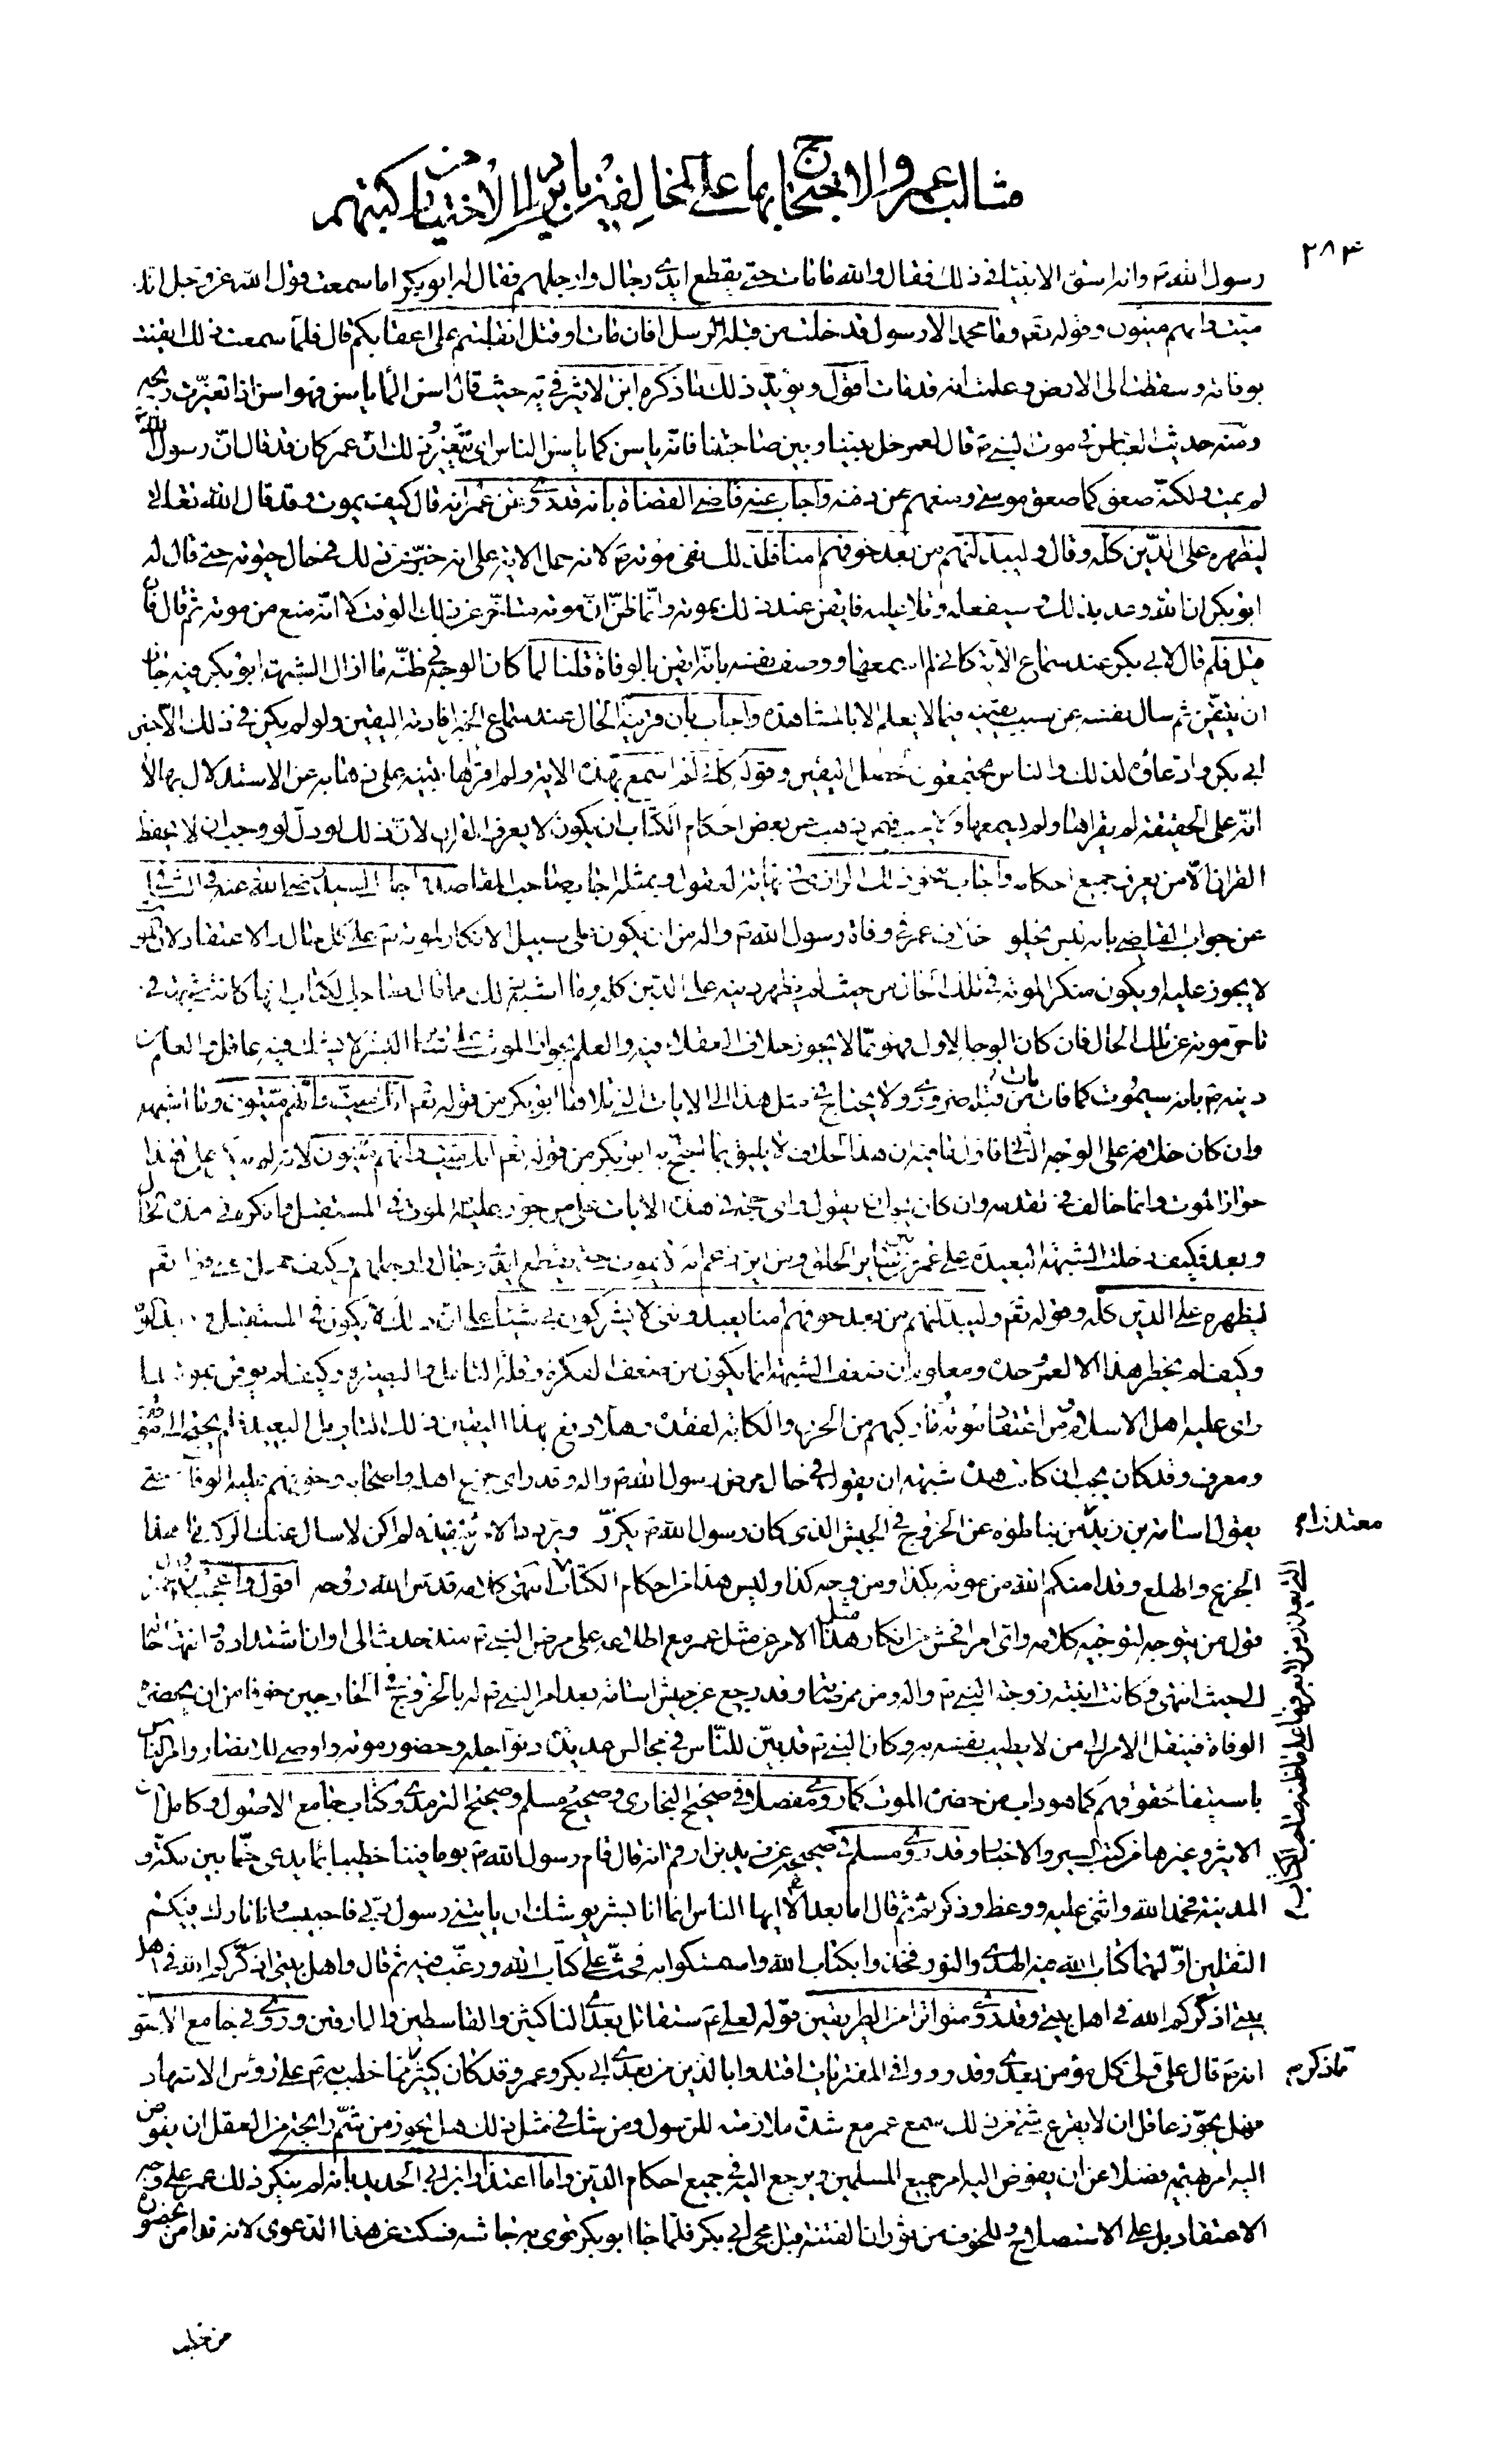 مثالب عمر والاحتجاج بها على المخالفين بايراد الاخبار من كتبهم
۲۸۳
رسول الله ص وانه اسوة الانبياء في ذلك فقال والله ما مات حتى يقطع ايدي رجال وارجلهم فقال له ابو بكر اما سمعت قول الله عز وجل انك
ميت وانهم ميتون وقوله تعم وما محمد الا رسول قد خلت من قبله الرسل افان مات او قتل انقلبتم على اعقابكم قال فلما سمعت ذلك ايقنت
بوفاته وسقطت الى الارض وعلمت انه قد مات اقول ويؤيد ذلك ما ذكره ابن الاثير في يه حيث قال اسن الماء ياسن فهو اسن اذا تغيرت ريحه
ومنه حديث العباس في موت النبي ص قال لعمر خل بيننا وبين صاحبنا فانه ياسن كما ياسن الناس اي يتغير وذلك ان عمر كان قد قال ان رسول الله
لم يمت ولكنه صعق كما صعق موسى ومنعهم عن دفنه واجاب عنه قاضي القضاة بانه قد روي عن عمر انه قال كيف يموت وقد قال الله تعالى
ليظهره على الدين كله وقال وليبدلنهم من بعد خوفهم امنا فلذلك نفى موته ص لانه حمل الاية على انه خبر عن ذلك في حال حيوته حتى قال له
ابو بكر ان الله وعد بذلك وسيفعله وتلا عليه فايقن عند ذلك بموته وانما ظن ان موته متاخر عن ذلك الوقت لا انه منع من موته ثم قال فان
قيل فلم قال لابي بكر عند سماع الاية كاني لم اسمعها ووصف نفسه بانه ايقن بالوفاة قلنا لما كان الوجه في ظنه ما ازال الشبهة ابو بكر فيه جاز
ان يتيقن ثم سال نفسه عن سبب يقينه فيما لا يعلم الا بالمشاهدة واجاب بان قرينة الحال عند سماع الخبر افادته اليقين ولو لم يكن في ذلك الا خبر
ابي بكر وادعاؤه لذلك والناس مجتمعون لحصل اليقين وقوله كاني لم اسمع بهذه الاية ولم اقراها تنبيه على ذهابه عن الاستدلال بها لا
انه على الحقيقة لم يقراها ولم يسمعها ولا يجب فيمن ذهب عن بعض احكام الكتاب ان يكون لا يعرف القران لان ذلك لو دل لوجب ان لا يحفظ
القران الا من يعرف جميع احكامه واجاب بنحو ذلك الرازي في نهاية العقول وبمثله اجاب صاحب المقاصد واجاب السيد رضي الله عنه في الشافي
عن جواب القاضي بانه ليس يخلو خلاف عمر في وفاة رسول الله ص واله من ان يكون على سبيل الانكار لموته ص على كل حال والاعتقاد لان الموت
لا يجوز عليه او يكون منكرا لموته في تلك الحال من حيث لم يظهر دينه على الدين كله وما اشبه ذلك مما قال صاحب الكتاب انها كانت شبهة في
تاخر موته عن تلك الحال فان كان الوجه الاول فهو مما لا يجوز خلاف العقلاء فيه والعلم بجواز الموت على سائر البشر لا يشك فيه عاقل والعلم من
دينه ص بانه سيموت كما مات من قبله ضروري ولا يحتاج في مثل هذا الى الايات التي تلاها ابو بكر من قوله تعم انك ميت وانهم ميتون وما اشبهه
وان كان خلافه على الوجه الثاني فاول ما فيه ان هذا الخلاف لا يليق بما احتج به ابو بكر من قوله تعم انك ميت وانهم ميتون لانه لم ينكر على هذا
جواز الموت وانما خالف في تقدمه وان كان يجب ان يقول واي حجة في هذه الايات على من جوز عليه ص الموت في المستقبل وانكره في هذه الحال
وبعد فكيف دخلت الشبهة البعيدة على عمر من بين سائر الخلق ومن اين زعم انه لا يموت حتى يقطع ايدي رجال وارجلهم وكيف حمل معنى قوله تعم
ليظهره على الدين كله وقوله تعم وليبدلنهم من بعد خوفهم امنا يعبدونني لا يشركون بي شيئا على ان ذلك لا يكون في المستقبل
وكيف لم يخطر هذا الا لعمر وحده ومعلوم ان ضعف الشبهة انما يكون من ضعف الفكرة وقلة التامل والبصيرة وكيف لم يوقن بموته لما
راى عليه اهل الاسلام من اعتقاد موته وما ركبهم من الحزن والكابة لفقده وهلا دفع بهذا اليقين ذلك التاويل البعيد فلم يحتج الى موقف
ومعرف وقد كان يجب ان كانت هذه شبهة ان يقول في حال مرض رسول الله ص واله وقد راى جزع اهله واصحابه وخوفهم عليه الوفاة حتى
يقول اسامة بن زيد من تباطؤه عن الخروج في الجيش الذي كان رسول الله ص يكرر ويردد الامر بتنفيذه لم اكن لاسال عنك الركب ما هذا
الجزع والهلع وقد امنكم الله من موته بكذا ومن وجه كذا وليس هذا من احكام الكتاب انتهى كلامه قدس الله روحه اقول واعجب من
قول من يتوجه لتوجيه كلامه واي امر افحش من انكار مثل هذا الامر عن مثل عمر مع اطلاعه على مرض النبي ص منذ حدث الى اوان اشتداده وانتهاء حاله
الى حيث انتهى وكانت ابنته زوجة النبي ص واله ومن ممرضاته وقد رجع عن جيش اسامة بعد امر النبي ص له بالخروج في الخارجين خوفا من ان يحضره
الوفاة فينقل الامر الى من لا يطيب نفسه به وكان النبي ص قد بين للناس في مجالس عديدة دنو اجله وحضور موته واوصى للانصار وامر الناس
باستيفاء حقوقهم كما هو داب من حضره الموت كما روي مفصلا في صحيح البخاري وصحيح مسلم وصحيح الترمذي وكتاب جامع الاصول وكامل ابن
الاثير وغيرها من كتب السير والاخبار وقد روى مسلم في صحيحه عن زيد بن ارقم انه قال قام رسول الله ص يوما فينا خطيبا بماء يدعى خما بين مكة و
المدينة فحمد الله واثنى عليه ووعظ وذكر ثم قال اما بعد الا ايها الناس انما انا بشر يوشك ان ياتيني رسول ربي فاجيب وانا تارك فيكم
الثقلين اولهما كتاب الله فيه الهدى والنور فخذوا بكتاب الله واستمسكوا به فحث على كتاب الله ورغب فيه ثم قال واهل بيتي اذكركم الله في اهل
بيتي اذكركم الله في اهل بيتي وقد روي متواترا من الطريقين قوله لعلي ع ستقاتل بعدي الناكثين والقاسطين والمارقين وروي في جامع الاصول
انه ص قال علي ولي كل مؤمن بعدي وقد رووا في المفتريات اقتدوا بالذين من بعدي ابي بكر وعمر وقد كان كثير مما خطب به ص على رؤس الاشهاد
فهل يجوز عاقل ان لا يقرع شئ من ذلك سمع عمر مع شدة ملازمته للرسول ومن شك في مثل ذلك هل يجوز من شم رايحة من العقل ان يفوض
اليه امر بهيمة فضلا عن ان يفوض اليه امر جميع المسلمين ويرجع اليه في جميع احكام الدين واما اعتذار ابن ابي الحديد بانه لم ينكر ذلك عمر على وجه
الاعتقاد بل على الاستصلاح وللخوف من ثوران الفتنة قبل مجئ ابي بكر فلما جاء ابو بكر قوي به جاشه فسكت عن هذا الدعوى لانه قد امن بحضوره
معتذرا م
ما ذكر م
من خطب